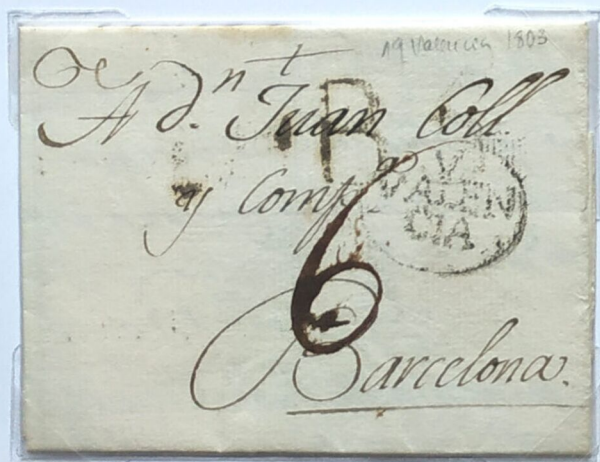 19 Valencia 1803
A d.n Juan Coll
y Comp.a
B
V.
VALEN
CIA
6
Barcelona.